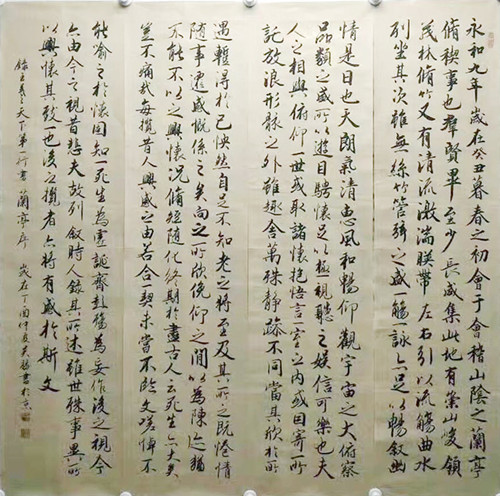 永和九年歲在癸丑暮春之初會于會稽山陰之蘭亭
脩稧事也羣賢畢至少長咸集此地有崇山峻領
茂林脩竹又有清流激湍暎帶左右引以流觴曲水
列坐其次雖無絲竹管弦之盛一觴一詠亦足以暢叙幽
情是日也天朗氣清惠風和暢仰觀宇宙之大俯察
品類之盛所以遊目騁懷足以極視聽之娛信可樂也夫
人之相與俯仰一世或取諸懷抱悟言一室之內或因寄所
託放浪形骸之外雖趣舍萬殊靜躁不同當其欣於所
遇暫得於己快然自足不知老之將至及其所之既惓情
隨事遷感慨係之矣向之所欣俛仰之間以為陳迹猶
不能不以之興懷況脩短隨化終期於盡古人云死生亦大矣
豈不痛哉每攬昔人興感之由若合一契未嘗不臨文嗟悼不
能喻之於懷固知一死生為虛誕齊彭殤為妄作後之視今
亦由今之視昔悲夫故列叙時人錄其所述雖世殊事異所
以興懷其致一也後之攬者亦將有感於斯文
錄王羲之天下第一行書蘭亭序 歲在丁酉仲夏書於京